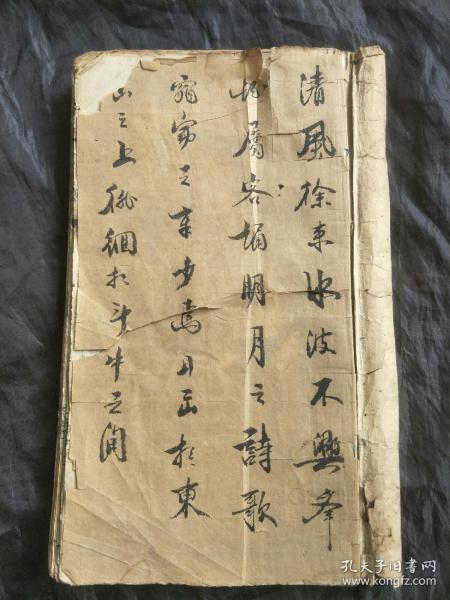 清風徐来水波不興举
酒屬客誦明月之詩歌
窈窕之章少焉月出於東
山之上徘徊於斗牛之間
孔夫子旧书网
www.kongfz.com